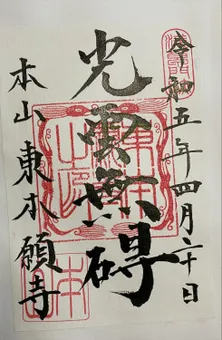 令和五年四月二十日
光雲無碍
本山東本願寺